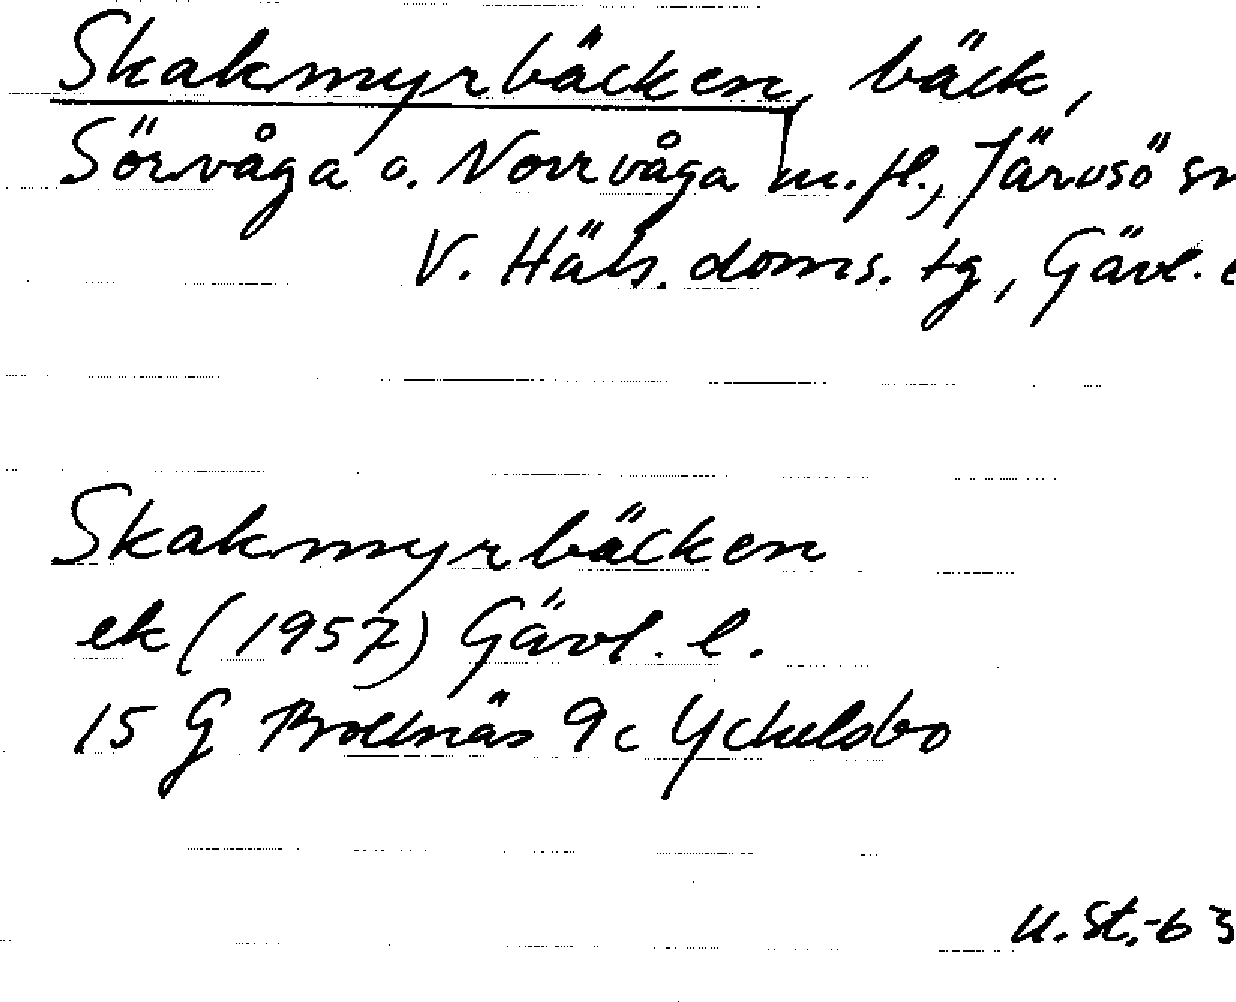 Skakmyrbäcken, bäck,
Sörvåga o. Norrvåga m. fl., Järvsö sn
V. Häls. doms. tg, Gävl. l
Skakmyrbäcken
ek (1957) Gävl. l.
15 G Bollnäs 9c Yckelsbo
U. St.-63